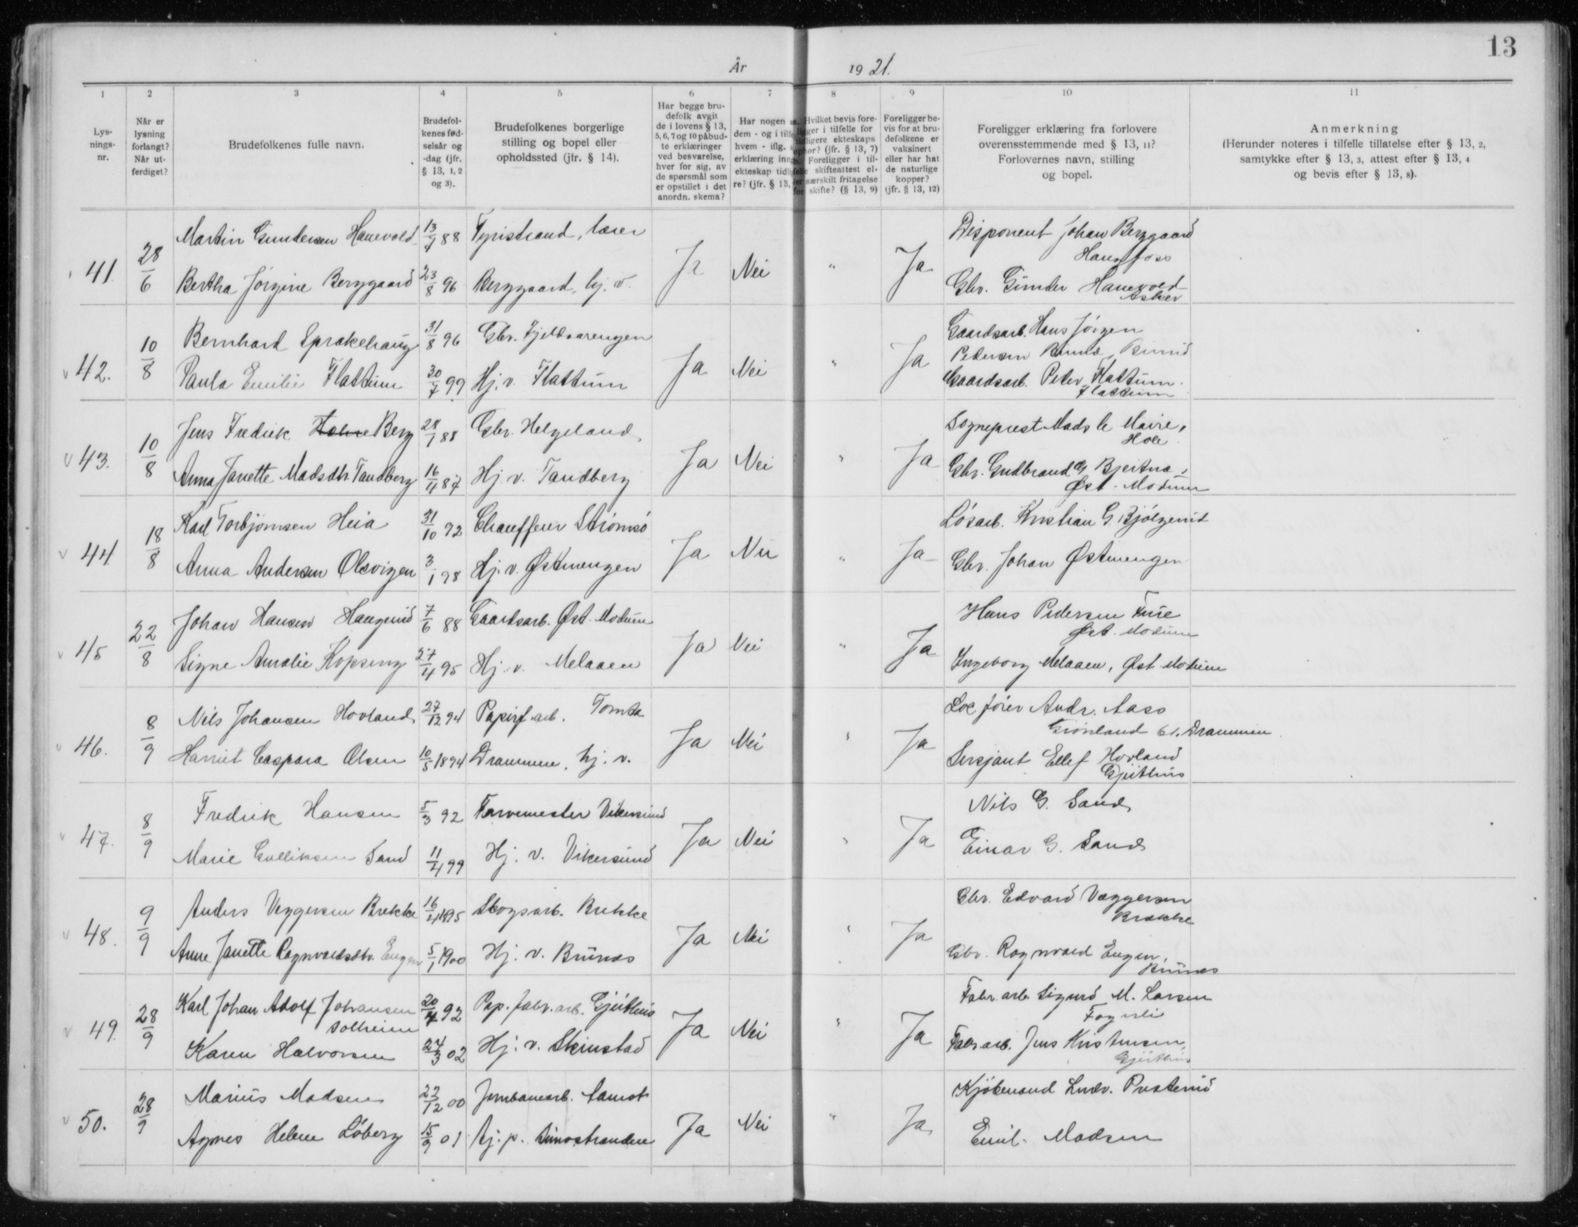 13
År 1921.
1 2 3 4 5 6 7 8 9 10 11
Lys-
nings-
nr.
Når er
lysning
forlangt?
Når ut-
ferdiget?
Brudefolkenes fulle navn.
Brudefol-
kenes fød-
selsår og
-dag (jfr.
§ 13, 1, 2
og 3).
Brudefolkenes borgerlige
stilling og bopel eller
opholdssted (jfr. § 14).
Har begge bru-
defolk avgit
de i lovens § 13,
5, 6, 7 og 10 påbud-
te erklæringer
ved besvarelse,
hver for sig, av
de spørsmål som
er opstillet i det
anordn. skema?
Har nogen
dem - og i
hvem - iflg.
erklæring
ekteskap
re? (jfr. § 13,
Hvilket bevis fore-
ligger i tilfelle for
tidligere ekteskaps
ophør? (jfr. § 13, 7)
Foreligger i til-
felle skifteattest el-
særskilt fritagelse
for skifte? (§ 13, 9)
Foreligger be-
vis for at bru-
defolkene er
vaksinert
eller har hat
de naturlige
kopper?
(jfr. § 13, 12)
Foreligger erklæring fra forlovere
overensstemmende med § 13, 11?
Forlovernes navn, stilling
og bopel.
Anmerkning
(Herunder noteres i tilfelle tillatelse efter § 13, 2,
samtykke efter § 13, 3, attest efter § 13, 4
og bevis efter § 13, 8).
41. 28/6 Martin Gundersen Hanevold 13/9 88 Tyristrand, lærer Ja Nei " Ja Disponent Johan Berggaard
Hønefoss
Bertha Jørgine Berggaard 23/8 96 Berggaard, hj. v. Gbr. Gunder Hanevold
Asker
42. 10/8 Bernhard Sprakehaug 31/8 96 Gbr. Fjeldvarengen Ja Nei " Ja Gaardsarb. Hans Jørgen
Pedersen
Paula Emilie Flattum 30/7 99 Hj. v. Flattum Gaardsarb. Peter Flattum.
Flattum
43. 10/8 Jens Fredrik Berg 28/1 88 Gbr. Helgeland, Ja Nei " Ja Sogneprest Mads le Maire,
Hole.
Anna Janette Madsdtr. Tandberg 16/4 87 Hj. v. Tandberg Gbr. Gudbrand G. Bjertnæ,
Øst-Modum
44 18/8 Karl Torbjørnsen Heia 31/10 92 Chauffeur Strømsø Ja Nei " Ja Løsarb. Kristian G. Bjølgerud
Anna Andersen Olsvigen 3/1 98 Hj. v. Østmengen Gbr. Johan Østmengen
45 22/8 Johan Hansen Haugerud 7/6 88 Gaardsarb. Øst-Modum Ja Nei " Ja Hans Pedersen
Øst-Modum
Signe Amalie Kopseng 27/4 95 Hj. v. Melaaen Ingeborg Melaaen, Øst Modum
46. 8/9 Nils Johansen Hovland 27/12 94 Papirf. arb. Ja Nei " Ja Lok.fører Andr. Aass
Grønland 61, Drammen.
Harriet Caspara Olsen 10/5 1894 Drammen, hj. v. Sersjant Ellef Hovland
Gjeithus
47. 8/9 Fredrik Hansen 5/3 92 Farvemester Vikersund Ja Nei " Ja Nils G. Sand
Marie Gulliksen Sand 11/4 99 Hj. v. Vikersund Einar G. Sand
48. 9/9 Anders Veggersen Brekke 16/4 1895 Skogsarb. Brekke Ja Nei " Ja Gbr. Edvard Væggersen
Brække
Anne Janette Ragnvaldsdtr. Engen 5/1 1900 Hj. v. Buunæs Gbr. Ragnvald Engen,
Buunæs
49. 28/9 Karl Johan Adolf Johansen
Solheim 20/4 92 Pap. fabr. arb. Gjeithus Ja Nei " Ja Fabr. arb. Sigurd M. Larsen
Fagerli
Karen Halvorsen 24/3 02 Hj. v. Skinstad Fabr. arb. Jens Kristensen,
Gjeithus
50. 28/9 Marius Madsen 23/12 00 Jernbanearb. Aamot Ja Nei " Ja Kjøbmand Ludv. Presterud
Agnes Helene Løberg 15/9 01 Hj. p. Simostranden Emil Madsen